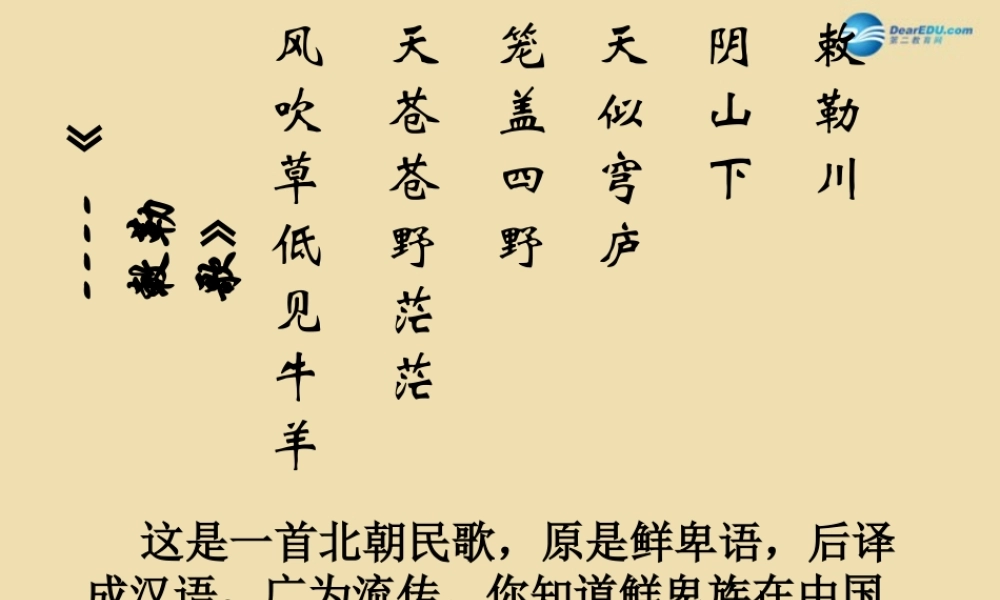 DearEDU.com
第二教育网
敕勒川
阴山下
天似穹庐
笼盖四野
天苍苍野茫茫
风吹草低见牛羊
这是一首北朝民歌，原是鲜卑语，后译
成汉语，广为流传。你知道鲜卑族在中国